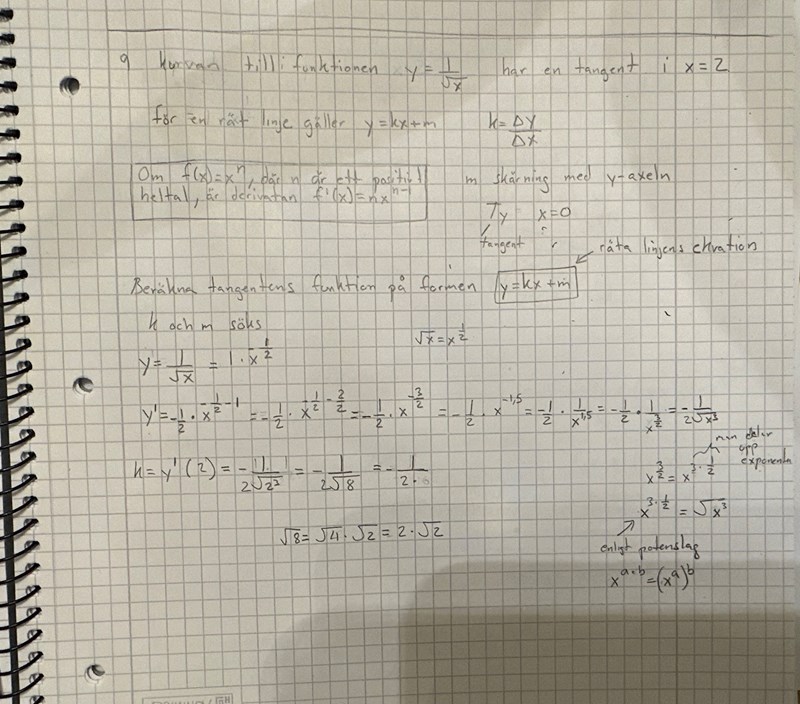 9 kurvan till funktionen y = 1/√x har en tangent i x = 2
för en rät linje gäller y = kx + m k = Δy/Δx
Om f(x) = xⁿ, där n är ett positivt
heltal, är derivatan f'(x) = nxⁿ⁻¹
m skärning med y-axeln
Ty x = 0
tangent
räta linjens ekvation
Beräkna tangentens funktion på formen y = kx + m
k och m söks
√x = x^(1/2)
y = 1/√x = 1 · x^(-1/2)
y' = -1/2 · x^(-1/2 - 1) = -1/2 · x^(-1/2 - 2/2) = -1/2 · x^(-3/2) = -1/2 · x^(-1,5) = -1/2 · 1/x^(1,5) = -1/2 · 1/x^(3/2) = -1/(2√x³)
man delar
upp
exponenten
k = y'(2) = -1/(2√2³) = -1/(2√8) = -1/(2·
x^(3/2) = x^(3·1/2)
x^(3·1/2) = √x³
√8 = √4 · √2 = 2 · √2
enligt potenslag
x^(a·b) = (x^a)^b